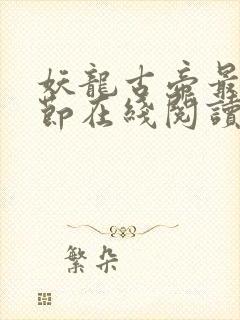 妖龍古帝最
節在綫閱讀
繁朵